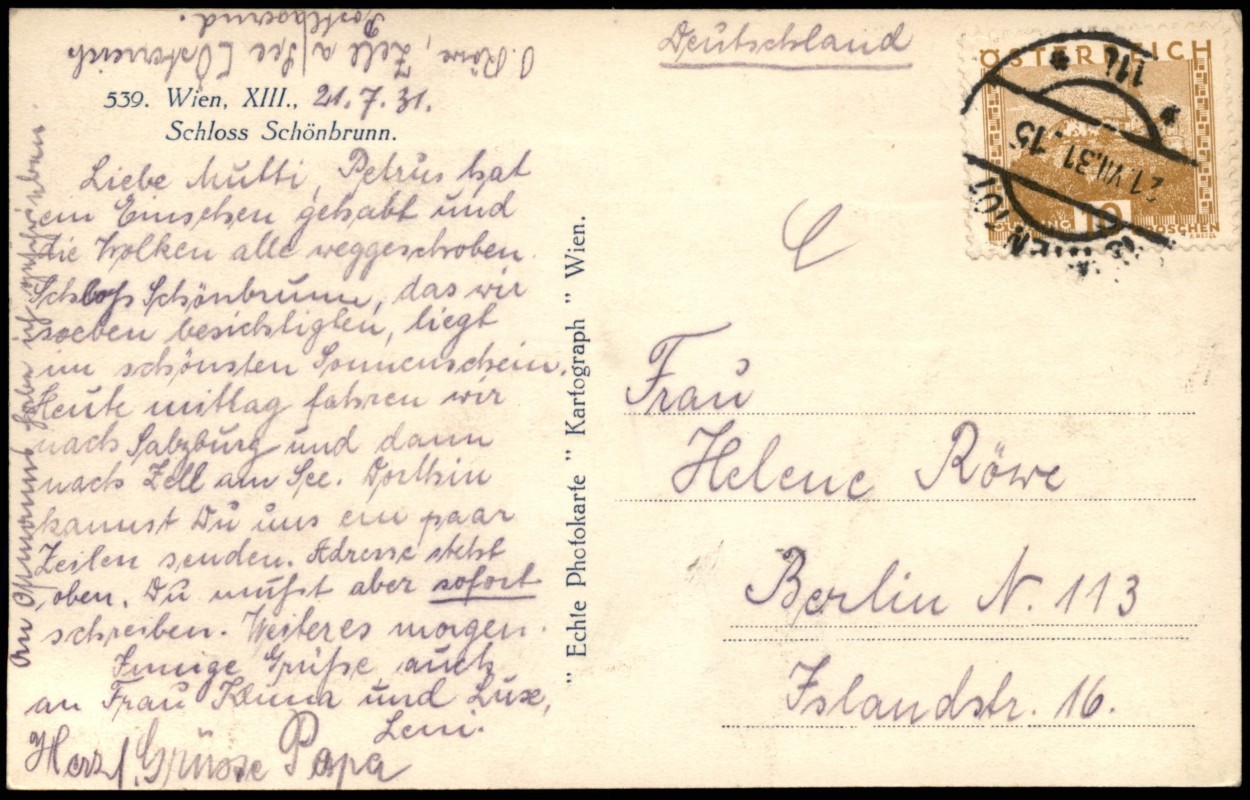 O. Röwe, Zell a/See (Österreich
Postlagernd.
539. Wien, XIII., 21.7.31.
Schloss Schönbrunn.
Liebe Mutti, Petrus hat
ein Einsehen gehabt und
die Wolken alle weggeschoben.
Schloß Schönbrunn, das wir
soeben besichtigten, liegt
im schönsten Sonnenschein.
Heute mittag fahren wir
nach Salzburg und dann
nach Zell am See. Dorthin
kannst Du uns ein paar
Zeilen senden. Adresse steht
oben. Du mußt aber sofort
schreiben. Weiteres morgen.
Innige Grüße, auch
an Frau und Luxe,
Leni.
Herzl. Grüsse Papa
An habe ich geschrieben
" Echte Photokarte " Kartograph " Wien.
Deutschland
ÖSTERREICH
10
GROSCHEN
WIEN 101
21.VII.31.15
Frau
Helene Röwe
Berlin N. 113
Islandstr. 16.